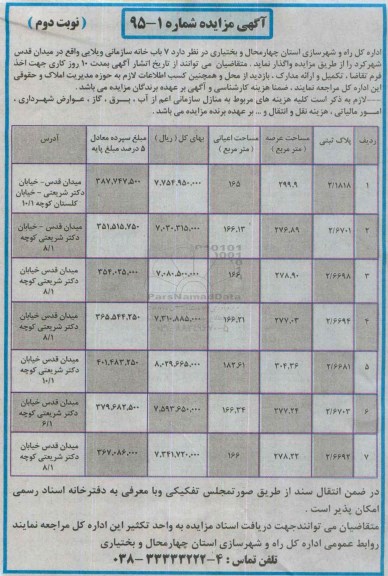 آگهی مزایده شماره ۱-۹۵ ( نوبت دوم )
اداره کل راه و شهرسازی استان چهارمحال و بختیاری در نظر دارد ۷ باب خانه سازمانی ویلایی واقع در میدان قدس
شهرکرد را از طریق مزایده واگذار نماید . متقاضیان می توانند از تاریخ انتشار آگهی بمدت ۱۰ روز کاری جهت اخذ
فرم تقاضا ، تکمیل و ارائه مدارک ، بازدید از محل و همچنین کسب اطلاعات لازم به حوزه مدیریت املاک و حقوقی
این اداره کل مراجعه نمایند . ضمنا هزینه کارشناسی و آگهی بر عهده برندگان مزایده می باشد .
---لازم به ذکر است کلیه هزینه های مربوط به منازل سازمانی اعم از آب ، برق ، گاز ، عوارض شهرداری ،
امور مالیاتی ، هزینه نقل و انتقال و ... بر عهده برنده مزایده می باشد .
ردیف پلاک ثبتی مساحت عرصه ( متر مربع ) مساحت اعیانی ( متر مربع ) بهای کل ( ریال ) مبلغ سپرده معادل ۵ درصد مبلغ پایه آدرس
۱ ۲/۱۸۱۸ ۲۹۹.۹ ۱۶۵ ۷,۷۵۴,۹۵۰,۰۰۰ ۳۸۷,۷۴۷,۵۰۰ میدان قدس - خیابان دکتر شریعتی - خیابان گلستان کوچه ۱۰/۱
۲ ۲/۶۷۰۱ ۲۷۶.۸۹ ۱۶۶.۱۳ ۷,۰۳۰,۳۱۵,۰۰۰ ۳۵۱,۵۱۵,۷۵۰ میدان قدس - خیابان دکتر شریعتی کوچه ۸/۱
۳ ۲/۶۶۹۸ ۲۷۸.۹۰ ۱۶۶ ۷,۰۸۰,۵۰۰,۰۰۰ ۳۵۴,۰۲۵,۰۰۰ میدان قدس خیابان دکتر شریعتی کوچه ۸/۱
۴ ۲/۶۶۹۴ ۲۷۷.۰۳ ۱۶۶.۳۱ ۷,۳۱۰,۸۸۵,۰۰۰ ۳۶۵,۵۴۴,۲۵۰ میدان قدس خیابان دکتر شریعتی کوچه ۸/۱
۵ ۲/۶۶۸۱ ۳۰۴.۳۶ ۱۸۲.۶۱ ۸,۰۲۹,۶۶۵,۰۰۰ ۴۰۱,۴۸۳,۲۵۰ میدان قدس خیابان دکتر شریعتی کوچه ۱۰/۱
۶ ۲/۶۷۰۳ ۲۷۷.۲۴ ۱۶۶.۳۴ ۷,۵۹۳,۶۵۰,۰۰۰ ۳۷۹,۶۸۲,۵۰۰ میدان قدس خیابان دکتر شریعتی کوچه ۶/۱
۷ ۲/۶۶۹۲ ۲۷۸.۲۲ ۱۶۶ ۷,۳۴۱,۷۲۰,۰۰۰ ۳۶۷,۰۸۶,۰۰۰ میدان قدس خیابان دکتر شریعتی کوچه ۸/۱
ParsNamadData
در ضمن انتقال سند از طریق صورتمجلس تفکیکی وبا معرفی به دفترخانه اسناد رسمی
امکان پذیر است .
متقاضیان می توانندجهت دریافت اسناد مزایده به واحد تکثیر این اداره کل مراجعه نمایند
روابط عمومی اداره کل راه و شهرسازی استان چهارمحال و بختیاری
تلفن تماس : ۴-۳۳۳۳۳۲۲۲-۰۳۸